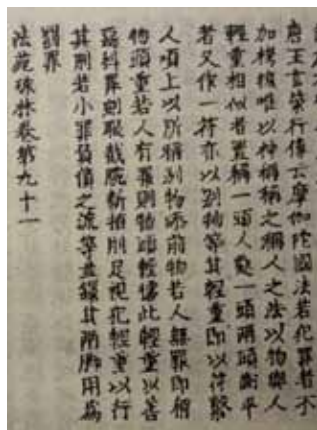 唐王玄策行傳云摩伽陀國法若犯罪者不
加栲棱唯以神稱稱之稱人之法以物與人
輕重相似者置稱一頭人處一頭兩頭衡平
若又作一符亦以別物等其輕重即以符繫
人項上以所稱別物添前物若人無罪即稱
物頭重若人有罪則物頭輕據此輕重以善
惡科罪剜眼截腕斬指刖足視犯輕重以行
其刑若小罪負債之流等並鎖其兩脚用為
罰罪
法苑珠林卷第九十一